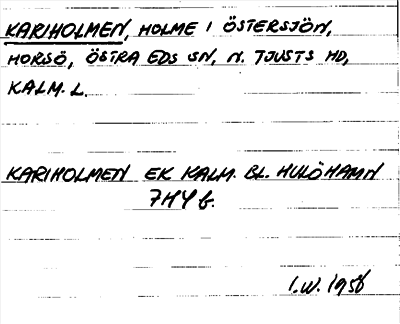 KARIHOLMEN, HOLME I ÖSTERSJÖN,
HORSÖ, ÖSTRA EDS SN, N. TJUSTS HD,
KALM. L.
KARIHOLMEN EK KALM. BL. HULÖHAMN
7H4 f.
I.W. 1956